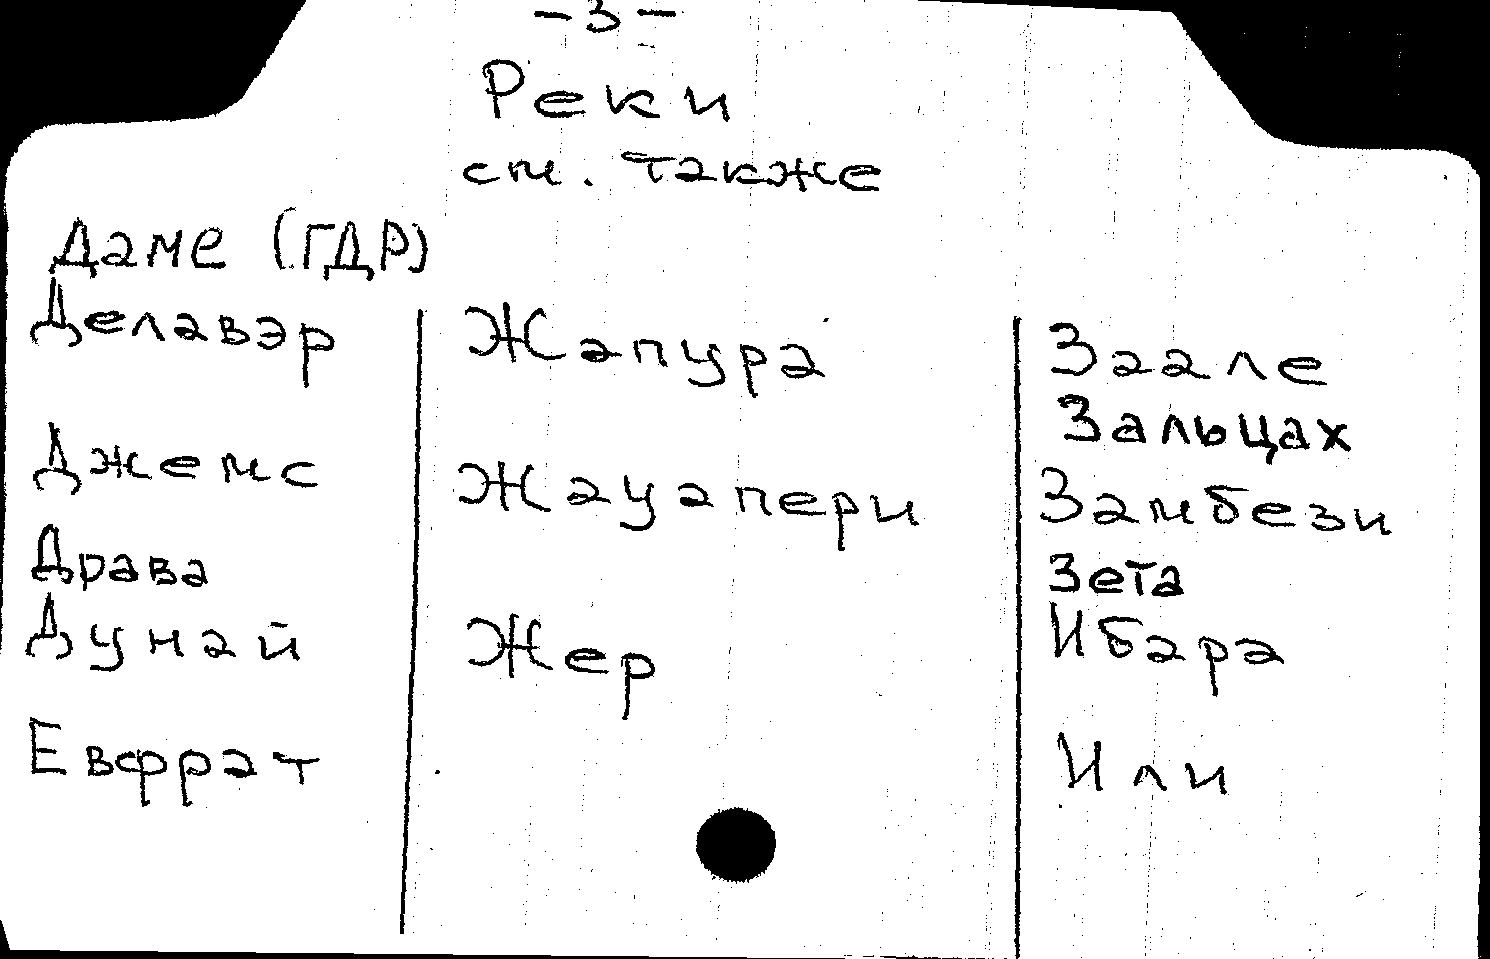 - 3 -
Реки
см. также
Даме (ГДР)
Делавэр
Джемс
Драва
Дунай
Евфрат
Жапура
Жауапери
Жер
Заале
Зальцах
Замбези
Зета
Ибара
Или